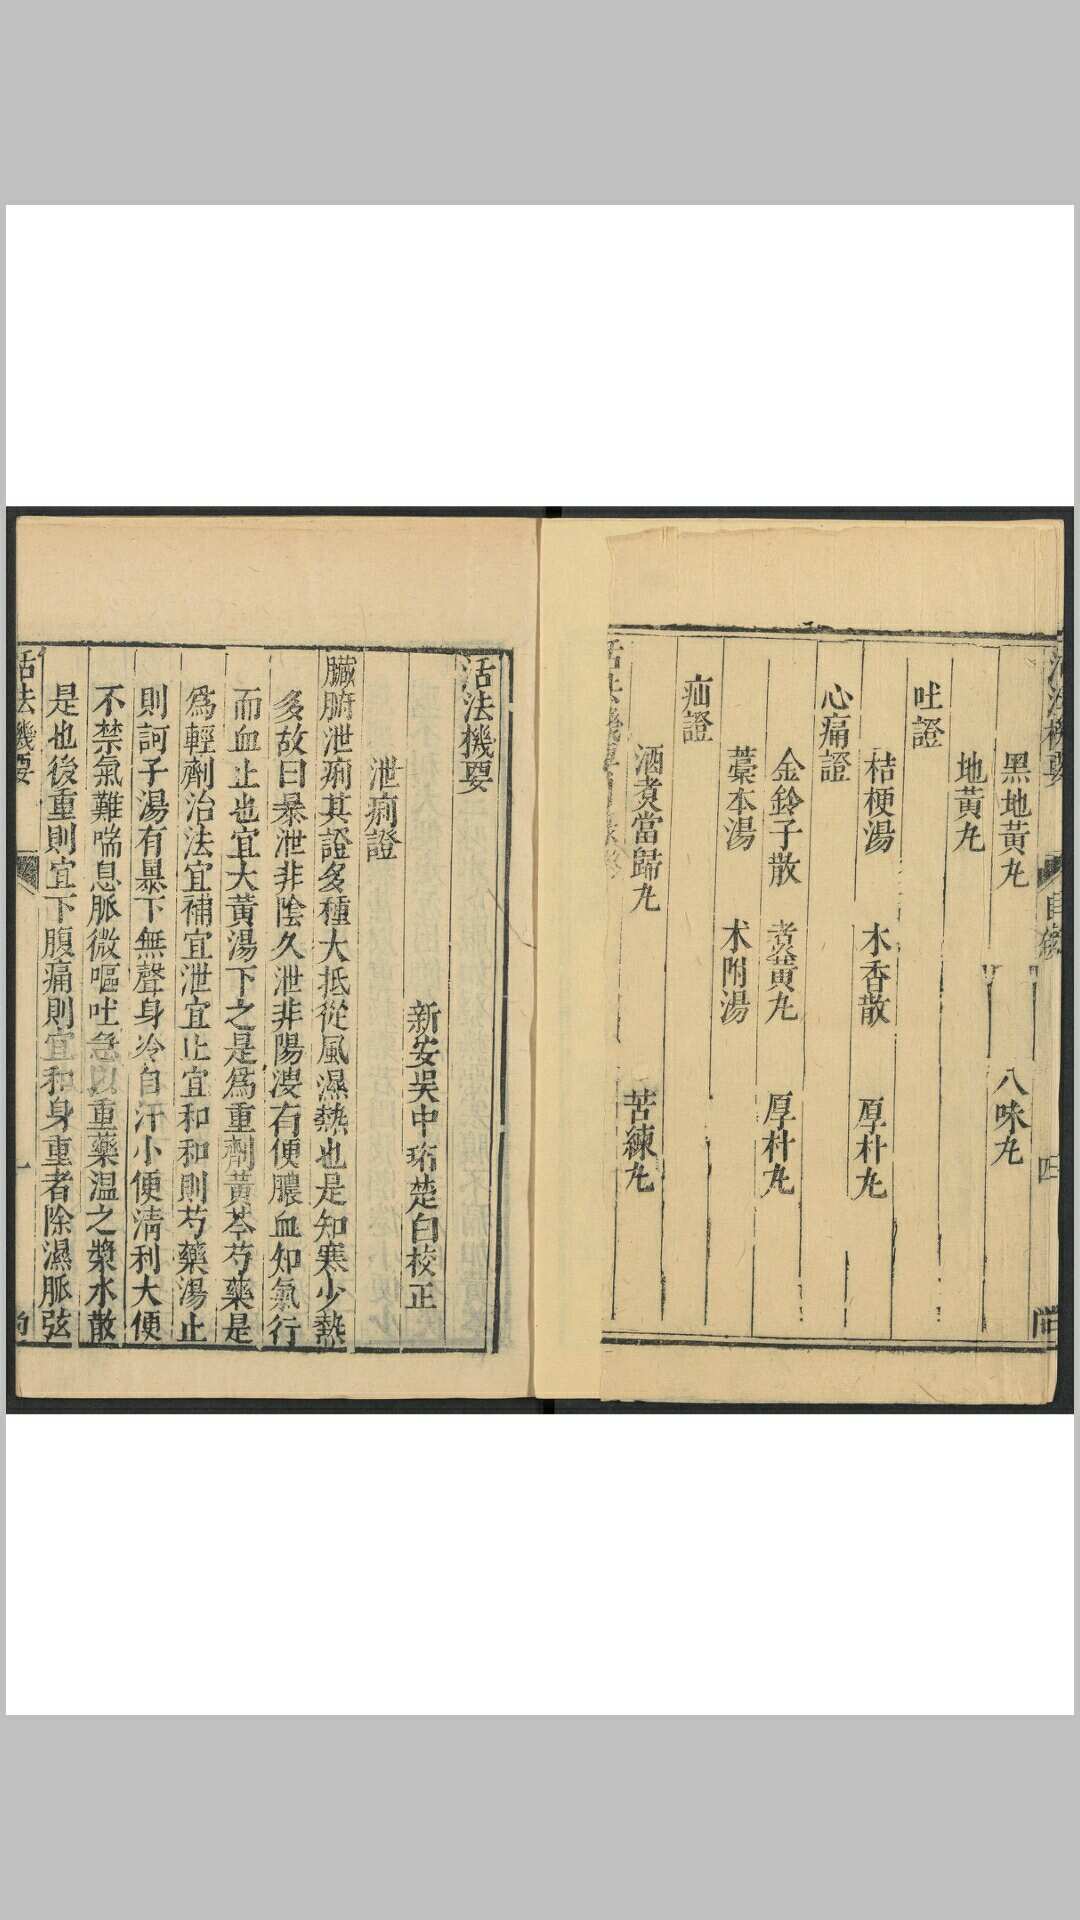 活法機要
目錄
四
黑地黃丸
八味丸
地黃丸
吐證
桔梗湯
木香散
厚朴丸
心痛證
金鈴子散
煮黃丸
厚朴丸
藁本湯
术附湯
疝證
酒煮當歸丸
苦練丸
活法機要目錄終
活法機要
新安吳中珩楚白校正
泄痢證
臟腑泄痢其證多種大抵從風濕熱也是知寒少熱
多故曰暴泄非陰久泄非陽溲有便膿血知氣行
而血止也宜大黃湯下之是爲重劑黃芩芍藥是
爲輕劑治法宜補宜泄宜止宜和和則芍藥湯止
則訶子湯有暴下無聲身冷自汗小便清利大便
不禁氣難喘息脈微嘔吐急以重藥溫之漿水散
是也後重則宜下腹痛則宜和身重者除濕脈弦
活法機要
一